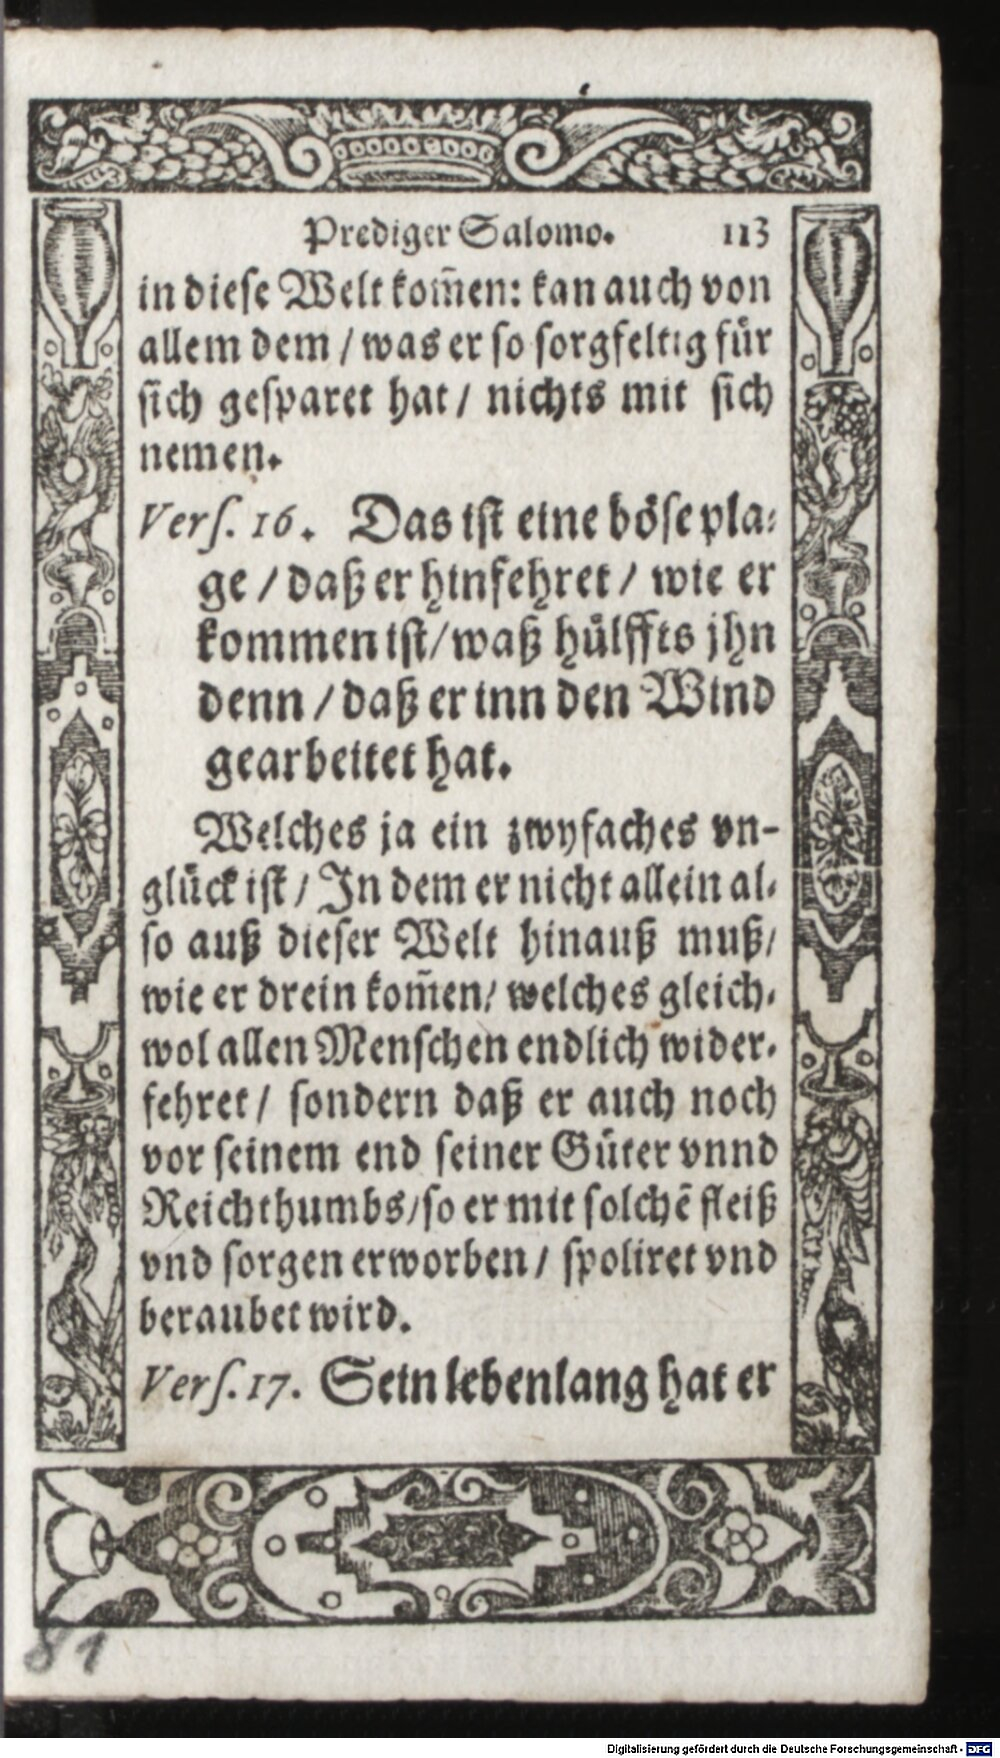 Prediger Salomo. 113
in dieſe Welt kom̃en: kan auch von
allem dem / was er ſo ſorgfeltig fuͤr
ſich geſparet hat / nichts mit ſich
nemen.
Verſ. 16. Das iſt eine boͤſe pla-
ge / daß er hinfehret / wie er
kommen iſt / waß huͤlffts jhn
denn / daß er inn den Wind
gearbeitet hat.
Welches ja ein zwyfaches vn-
gluͤck iſt / In dem er nicht allein al-
ſo auß dieſer Welt hinauß muß /
wie er drein kom̃en / welches gleich-
wol allen Menſchen endlich wider-
fehret / ſondern daß er auch noch
vor ſeinem end ſeiner Guͤter vnnd
Reichthumbs / ſo er mit ſolchẽ fleiß
vnd ſorgen erworben / ſpoliret vnd
beraubet wird.
Verſ. 17. Sein lebenlang hat er
81
Digitalisierung gefördert durch die Deutsche Forschungsgemeinschaft - DFG